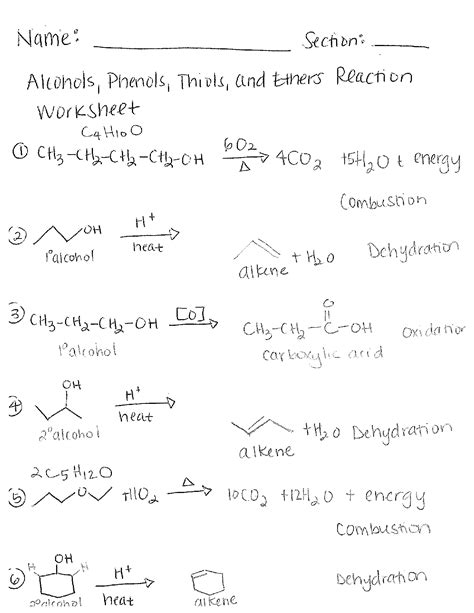 Name: ____________ Section: ____
Alcohols, Phenols, Thiols, and Ethers Reaction
Worksheet
C4H10O
① CH3-CH2-CH2-CH2-OH 6O2 Δ → 4CO2 +5H2O + energy
Combustion
② OH H+ heat → + H2O Dehydration
1°alcohol alkene
③ CH3-CH2-CH2-OH [O] → CH3-CH2-C-OH Oxidation
O
1°alcohol carboxylic acid
④ OH H+ heat → +H2O Dehydration
2°alcohol alkene
2C5H12O
⑤ O +11O2 Δ → 10CO2 +12H2O + energy
Combustion
⑥ H OH H H+ heat → Dehydration
2°alcohol alkene